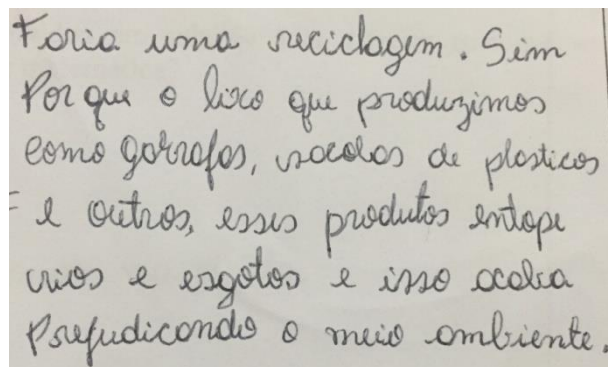 Faria uma reciclagem. Sim
Porque o lixo que produzimos
como garrafas, sacolas de plasticos
e outros, esses produtos entope
rios e esgotos e isso acaba
Prejudicando o meio ambiente.